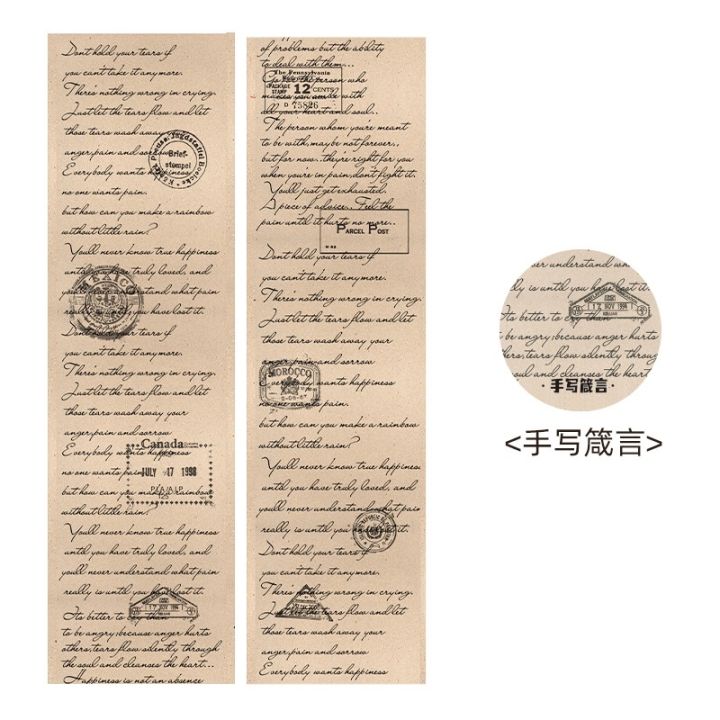 Dont hold your tears if
you cant take it anymore.
Theres nothing wrong in crying.
Just let the tears flow and let
those tears wash away
anger,pain and sorrow
Everybody wants happiness
no one wants pain.
but how can you make a rainbow
without little rain?
Youll never know true happiness
until you have truly loved, and
youll never understand what pain
really is until you have lost it.
Dont hold your tears if
you cant take it anymore.
Theres nothing wrong in crying.
Just let the tears flow and let
those tears wash away your
anger,pain and sorrow
Everybody wants happiness
no one wants pain.
but how can you make a rainbow
without little rain?
Youll never know true happiness
until you have truly loved, and
youll never understand what pain
really is until you have lost it.
Its better to cry than
to be angry;because anger hurts
others,tears flow silently through
the soul and cleanses the heart...
Happiness is not an absence
Brief-
stempel
MEXICO
Canada
JULY 17 1998
17 NOV 1994
of problems but the ability
to deal with them...
Go for the person who
makes you smile with
all your heart and soul..
The person whom you're meant
to be with,maybe not forever,
but for now..they're right for you
when youre in pain,dont fight it.
Youll just get exhausted.
A piece of advice.. Feel the
pain until it hurts no more..
Dont hold your tears if
you cant take it anymore.
Theres nothing wrong in crying.
Just let the tears flow and let
those tears wash away your
anger,pain and sorrow
Everybody wants happiness
no one wants pain.
but how can you make a rainbow
without little rain?
Youll never know true happiness
until you have truly loved, and
youll never understand what pain
really is until you have lost it.
Dont hold your tears if
you cant take it anymore.
Theres nothing wrong in crying.
Just let the tears flow and let
those tears wash away your
anger,pain and sorrow
Everybody wants happiness
The Pennsylvania
PACKAGE
STAMP 12 CENTS
D 75826
PARCEL POST
MOROCCO
2-08-87
er understand wh
ly is until you have lost it.
Its better to cry than
17 NOV 1994
be angry;because anger hurt
hers,tears flow silently throug
soul and cleanses the heart
·手写箴言·
<手写箴言>